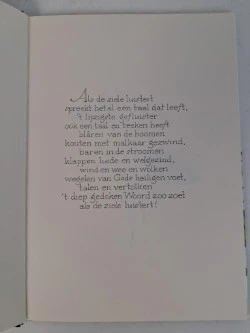 Als de ziele luistert
spreekt het al een taal dat leeft,
't lijzigste gefluister
ook een taal en teeken heeft
blâren van de boomen
kouten met malkaar gezwind,
baren in de stroomen
klappen luide en welgezind,
wind en wee en wolken
wegelen van Gods heiligen voet,
talen en vertolken
't diep gedoken Woord zoo zoet
als de ziele luistert!